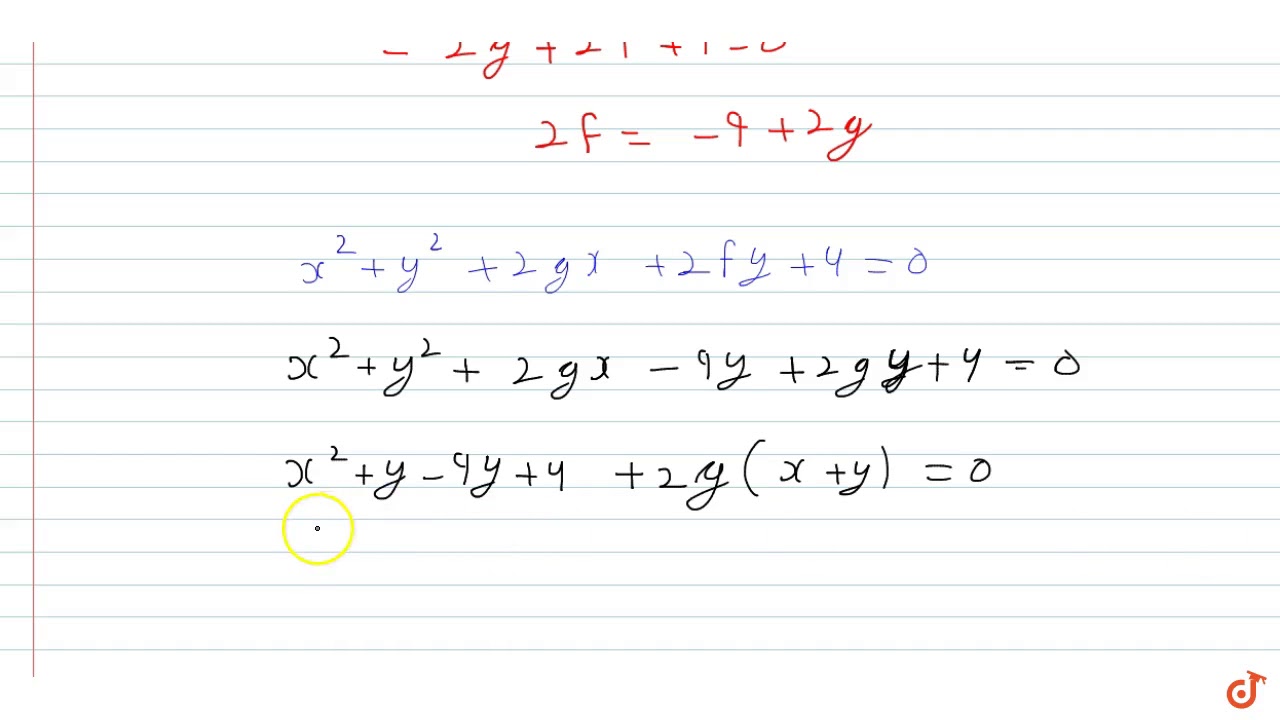 2f = -9 + 2g
x² + y² + 2gx + 2fy + 4 = 0
x² + y² + 2gx - 9y + 2gy + 4 = 0
x² + y - 9y + 4 + 2g(x + y) = 0